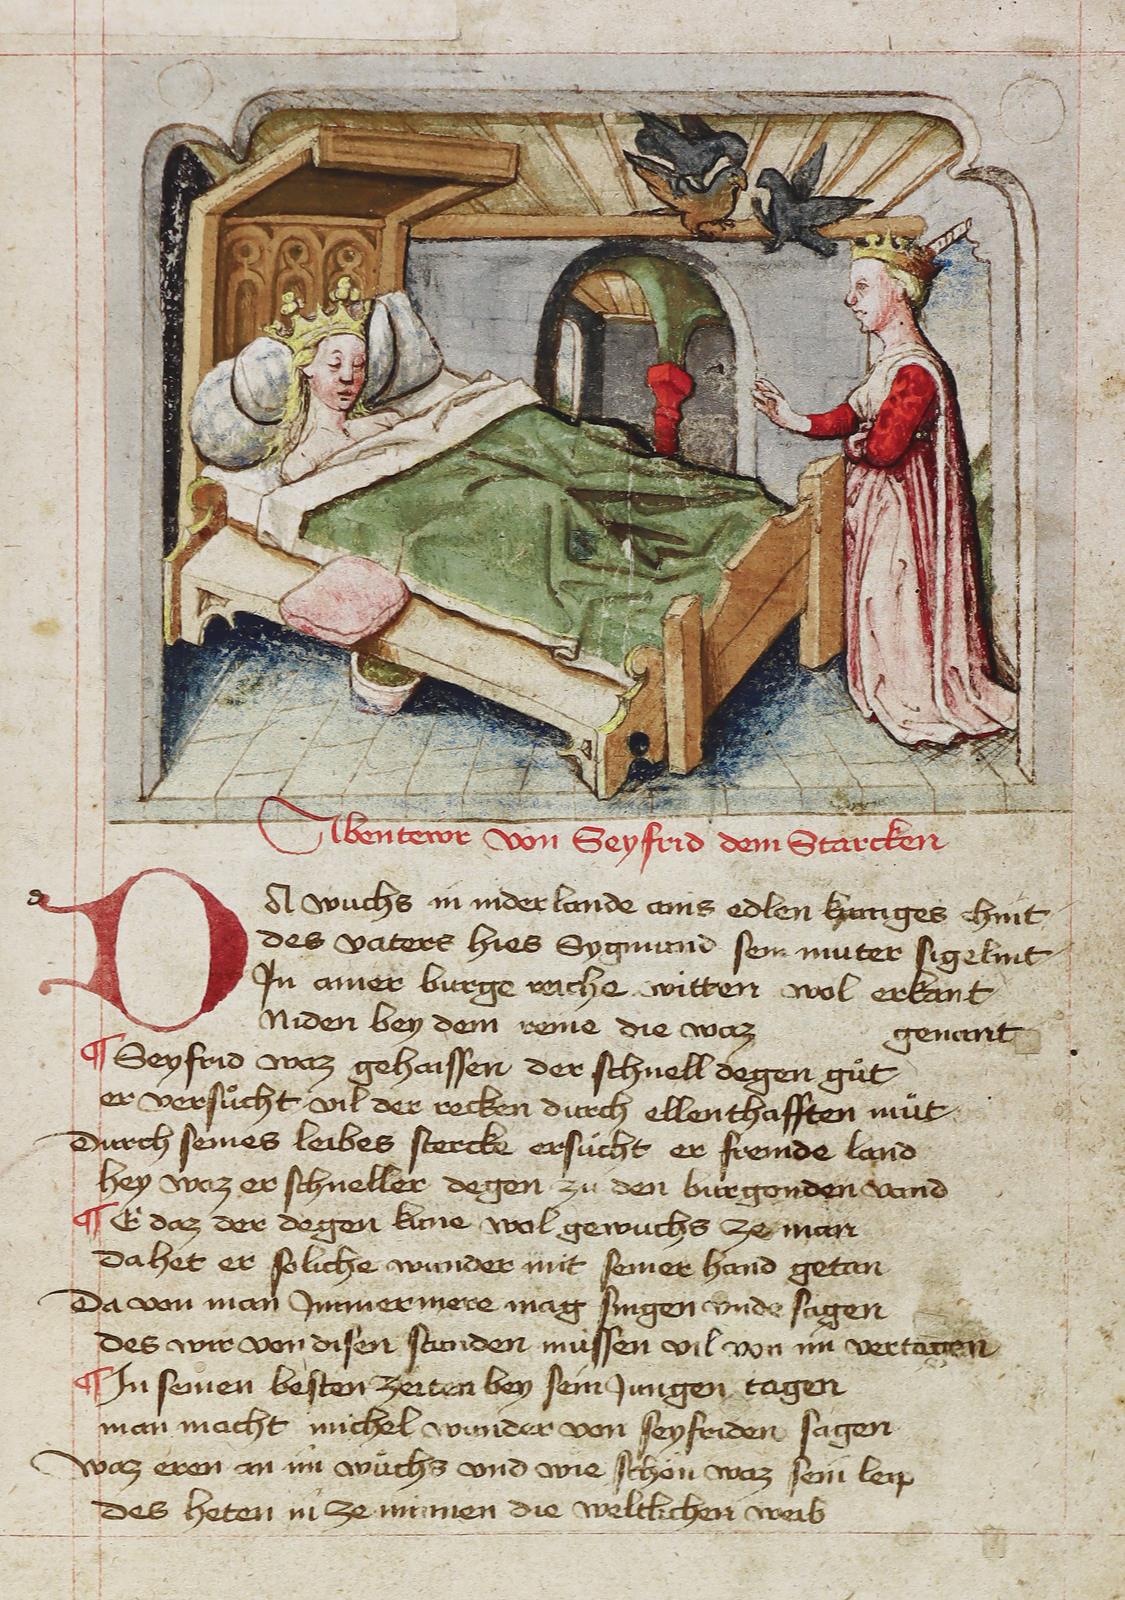 Abentewr von Seyfrid dem Starcken
DA wuchs in niderlande ains edlen kuniges chint
des vaters hies Sygmund sein muter sigelint
In ainer burge reiche witten wol erkant
Niden bey dem reine die waz genant
¶ Seyfrid waz gehaissen der schnell degen gůt
er versůcht vil der recken durch ellenthafften můt
Durch seines leibes stercke ersůcht er fremde land
hey waz er schneller degen zu den burgonden vand
¶ E daz der degen kune wol gewuchs ze man
Da het er soliche wunder mit seiner hand getan
Da von man Immermere mag singen vnde sagen
des wir von disen stunden mussen vil von im vertagen
¶ In seinen besten zeiten bey sein Jungen tagen
man macht michel wunder von seyfriden sagen
Waz eren an im wůchs vnd wie schon waz sein leip
des heten in ze minnen die weltlichen weib